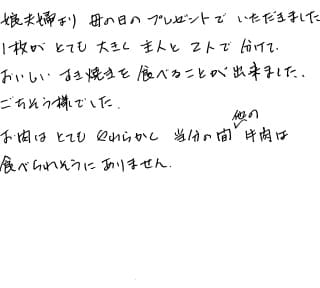 娘夫婦より 母の日の プレゼントで いただきました
1枚が とても 大きく 主人と 2人で 分けて、
おいしい すき焼きを 食べることが 出来ました.
ごちそう様でした.
お肉は とても やわらかく 当分の間 他の 牛肉は
食べられそうに ありません.